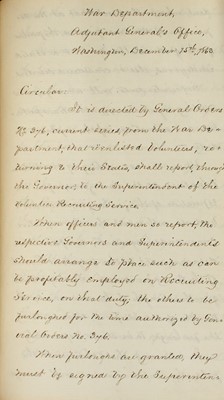 War Department,
Adjutant General's Office,
Washington, December 15th, 1863
Circular.
It is directed by General Orders
No. 376, current series, from the War De-
partment, that reenlisted Volunteers, re-
turning to their States, shall report, through
the Governors to the Superintendent of the
Volunteer Recruiting Service
When officers and men so report, the
respective Governors and Superintendents
should arrange to place such as can
be profitably employed on Recruiting
Service, on that duty, the others to be
furloughed for the time authorized by Gen-
eral Orders No. 376.
When furloughs are granted, they
must be signed by the Superinten-